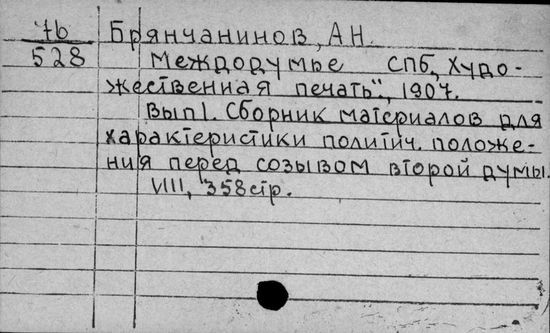 7б Брянчанинов, А.Н.
528 Междодумье СПб, Худо-
жественная печать", 1907.
Вып 1. Сборник материалов для
характеристики политич. положе-
ния перед созывом второй думы.
VIII, 358 стр.